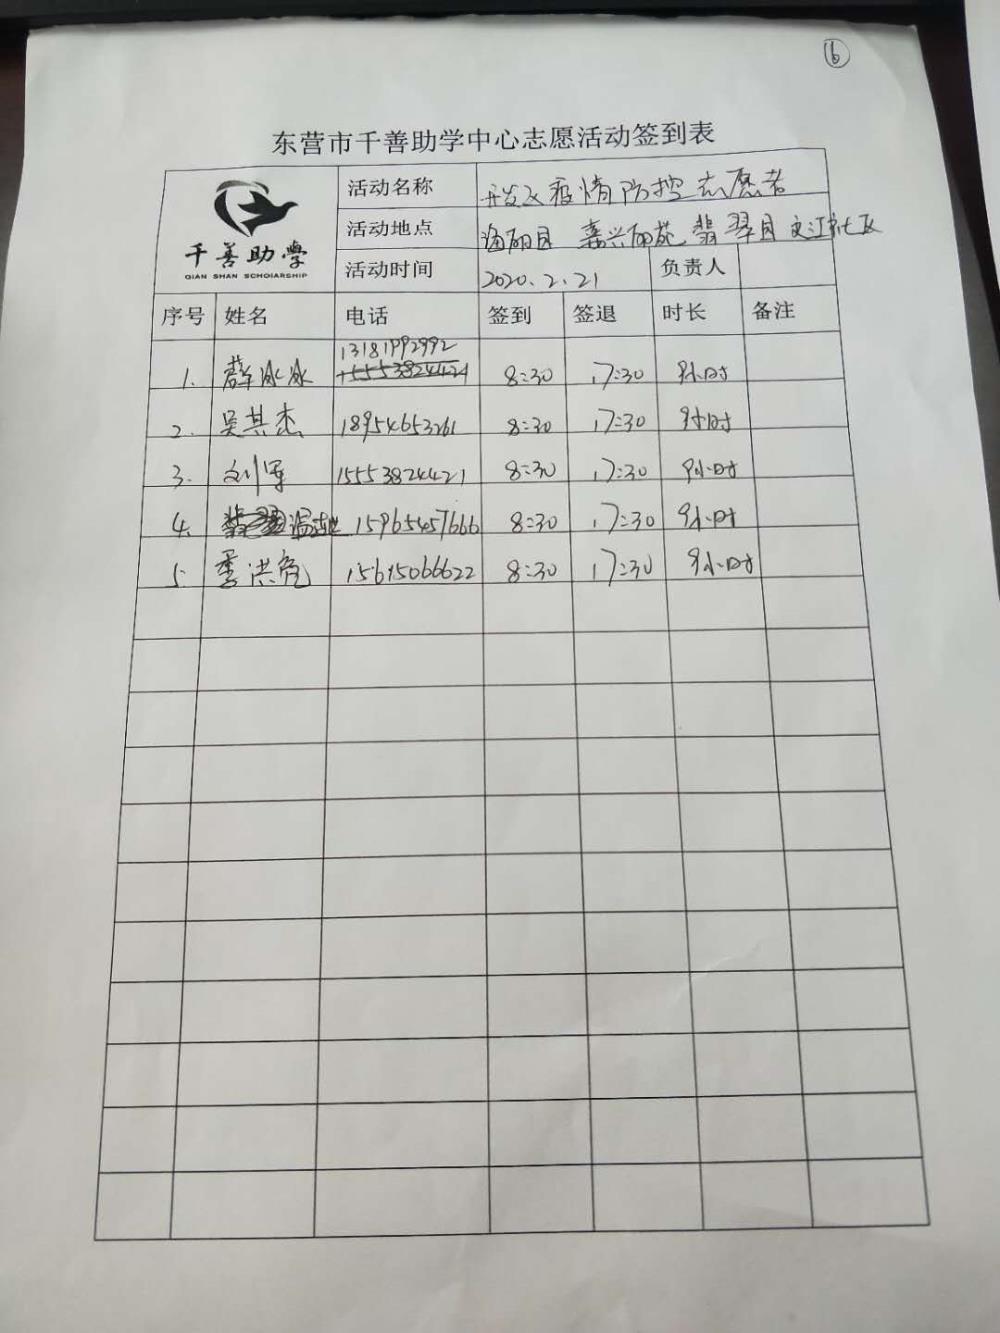 ⑥
东营市千善助学中心志愿活动签到表
千善助学
QIAN SHAN SCHOIARSHIP
活动名称 开发区疫情防控志愿者
活动地点 海丽园 嘉兴丽苑 翡翠园 文江社区
活动时间 2020.2.21 负责人
序号 姓名 电话 签到 签退 时长 备注
13181992992
1. 薛冰冰 15553824421 8:30 17:30 9小时
2. 吴其杰 18954653261 8:30 17:30 9小时
3. 刘军 15553824421 8:30 17:30 9小时
4. 15965457666 8:30 17:30 9小时
5. 季洪亮 15615066622 8:30 17:30 9小时